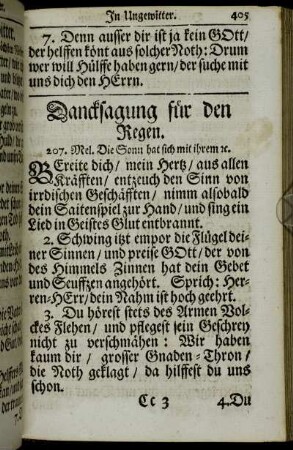 In Ungewitter. 405
7. Denn ausser dir ist ja kein GOtt/
der helffen könt aus solcher Noth: Drum
wer will Hülffe haben gern/ der suche mit
uns dich den HErrn.
Dancksagung für den
Regen.
207. Mel. Die Sonn hat sich mit ihrem ꝛc.
BEreite dich/ mein Hertz/ aus allen
Kräfften/ entzeuch den Sinn von
irrdischen Geschäfften/ nimm alsobald
dein Saitenspiel zur Hand/ und sing ein
Lied in Geistes Glut entbrannt.
2. Schwing itzt empor die Flügel dei-
ner Sinnen/ und preise GOtt/ der von
des Himmels Zinnen hat dein Gebet
und Seuffzen angehört. Sprich: Her-
ren-HErr/ dein Nahm ist hoch geehrt.
3. Du hörest stets des Armen Vol-
ckes Flehen/ und pflegest sein Geschrey
nicht zu verschmähen: Wir haben
kaum dir/ grosser Gnaden-Thron/
die Noth geklagt/ da hilffest du uns
schon.
Cc 3 4. Du